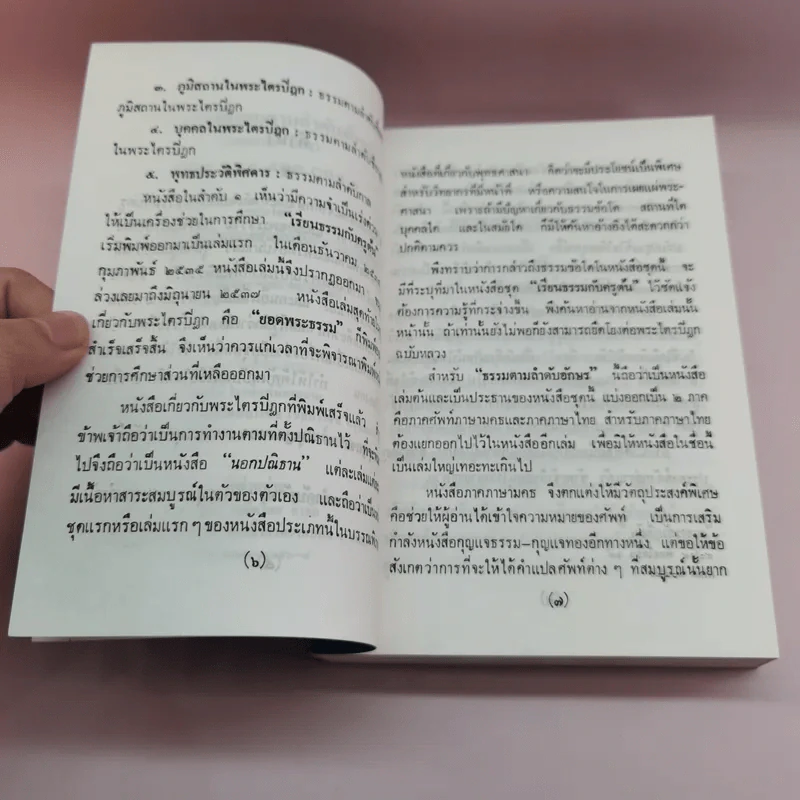 ๓. ภูมิสถานในพระไตรปิฎก : ธรรมตามลำดับ
ภูมิสถานในพระไตรปิฎก
๔. บุคคลในพระไตรปิฎก : ธรรมตามลำดับ
ในพระไตรปิฎก
๕. พุทธประวัติพิศดาร : ธรรมตามลำดับกาล
หนังสือในลำดับ ๑ เห็นว่ามีความจำเป็นเร่งด่วน
ให้เป็นเครื่องช่วยในการศึกษา “เรียนธรรมกับครูต้น”
เริ่มพิมพ์ออกมาเป็นเล่มแรก ในเดือนธันวาคม
กุมภาพันธ์ ๒๕๓๕ หนังสือเล่มนี้จึงปรากฏออกมา
ล่วงเลยมาถึงมิถุนายน ๒๕๓๗ หนังสือเล่มสุดท้าย
เกี่ยวกับพระไตรปิฎก คือ “ยอดพระธรรม” ก็พิมพ์
สำเร็จเสร็จสิ้น จึงเห็นว่าควรแก่เวลาที่จะพิจารณาพิมพ์
ช่วยการศึกษาส่วนที่เหลือออกมา
หนังสือเกี่ยวกับพระไตรปิฎกที่พิมพ์เสร็จแล้ว
ข้าพเจ้าถือว่าเป็นการทำงานตามที่ตั้งปณิธานไว้ ที่จะ
ไปจึงถือว่าเป็นหนังสือ “นอกปณิธาน” แต่ละเล่ม
มีเนื้อหาสาระสมบูรณ์ในตัวของตัวเอง และถือว่าเป็น
ชุดแรกหรือเล่มแรก ๆ ของหนังสือประเภทนี้ในบรรณพิภพ
(๖)
หนังสือที่เกี่ยวกับพุทธศาสนา คิดว่าจะมีประโยชน์เป็นพิเศษ
สำหรับวิทยากรที่มีหน้าที่ หรือความสนใจในการเผยแผ่พระ-
ศาสนา เพราะถ้ามีปัญหาเกี่ยวกับธรรมข้อใด สถานที่ใด
บุคคลใด และในสมัยใด ก็มีให้ค้นหาอ้างอิงได้สะดวกกว่า
ปกติตามควร
พึงทราบว่าการกล่าวถึงธรรมข้อใดในหนังสือชุดนี้ จะ
มีที่ระบุที่มาในหนังสือชุด “เรียนธรรมกับครูต้น” ไว้ชัดแจ้ง
ต้องการความรู้ที่กระจ่างขึ้น พึงค้นหาอ่านจากหนังสือเล่มนั้น
หน้านั้น ถ้าเท่านั้นยังไม่พอก็ยังสามารถยึดโยงต่อพระไตรปิฎก
ฉบับหลวง
สำหรับ “ธรรมตามลำดับอักษร” นี้ถือว่าเป็นหนังสือ
เล่มต้นและเป็นประธานของหนังสือชุดนี้ แบ่งออกเป็น ๒ ภาค
คือภาคศัพท์ภาษามคธและภาคภาษาไทย สำหรับภาคภาษาไทย
ต้องแยกออกไปไว้ในหนังสืออีกเล่ม เพื่อมิให้หนังสือในชื่อนี้
เป็นเล่มใหญ่เทอะทะเกินไป
หนังสือภาคภาษามคธ จึงตกแต่งให้มีวัตถุประสงค์พิเศษ
คือช่วยให้ผู้อ่านได้เข้าใจความหมายของศัพท์ เป็นการเสริม
กำลังหนังสือกุญแจธรรม–กุญแจทองอีกทางหนึ่ง แต่ขอให้ข้อ
สังเกตว่าการที่จะให้ได้คำแปลศัพท์ต่าง ๆ ที่สมบูรณ์นั้นยาก
(๗)